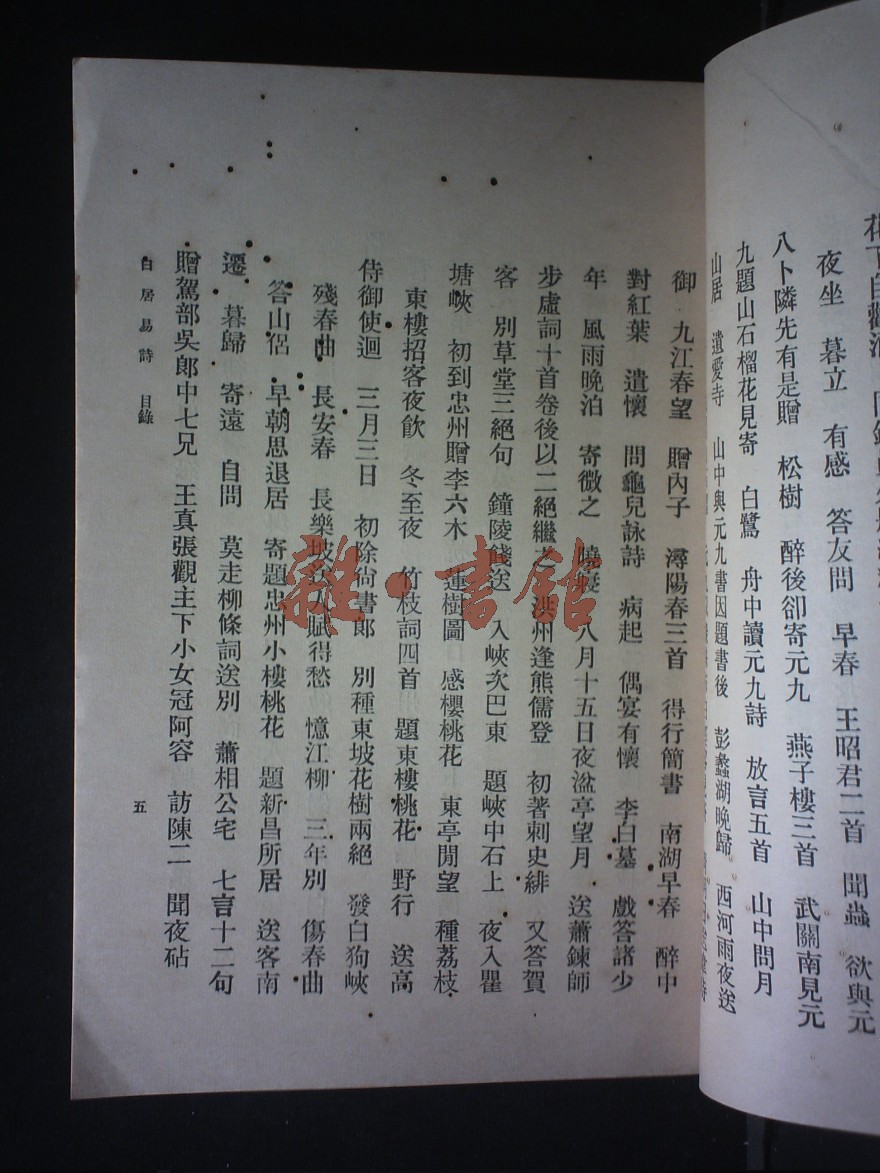 夜坐　暮立　有感　答友問　早春　王昭君二首　聞蟲　欲與元
八卜隣先有是贈　松樹　醉後卻寄元九　燕子樓三首　武關南見元
九題山石榴花見寄　白鷺　舟中讀元九詩　放言五首　山中問月
山居　遺愛寺　山中與元九書因題書後　彭蠡湖晚歸　西河雨夜送
御　九江春望　贈內子　潯陽春三首　得行簡書　南湖早春　醉中
對紅葉　遣懷　問龜兒詠詩　病起　偶宴有懷　李白墓　戲答諸少
年　風雨晚泊　寄微之　八月十五日夜湓亭望月　送蕭鍊師
步虛詞十首卷後以二絕繼之　洪州逢熊孺登　初著刺史緋　又答賀
客　別草堂三絕句　鐘陵餞送　入峽次巴東　題峽中石上　夜入瞿
塘峽　初到忠州贈李六　木蓮樹圖　感櫻桃花　東亭閒望　種荔枝
東樓招客夜飲　冬至夜　竹枝詞四首　題東樓桃花　野行　送高
侍御使迴　三月三日　初除尙書郞　別種東坡花樹兩絕　發白狗峽
殘春曲　長安春　長樂坡送人賦得愁　憶江柳　三年別　傷春曲
答山侶　早朝思退居　寄題忠州小樓桃花　題新昌所居　送客南
遷　暮歸　寄遠　自問　莫走柳條詞送別　蕭相公宅　七言十二句
贈駕部吳郞中七兄　王真張觀主下小女冠阿容　訪陳二　聞夜砧
白居易詩　目錄
五
雜·書館